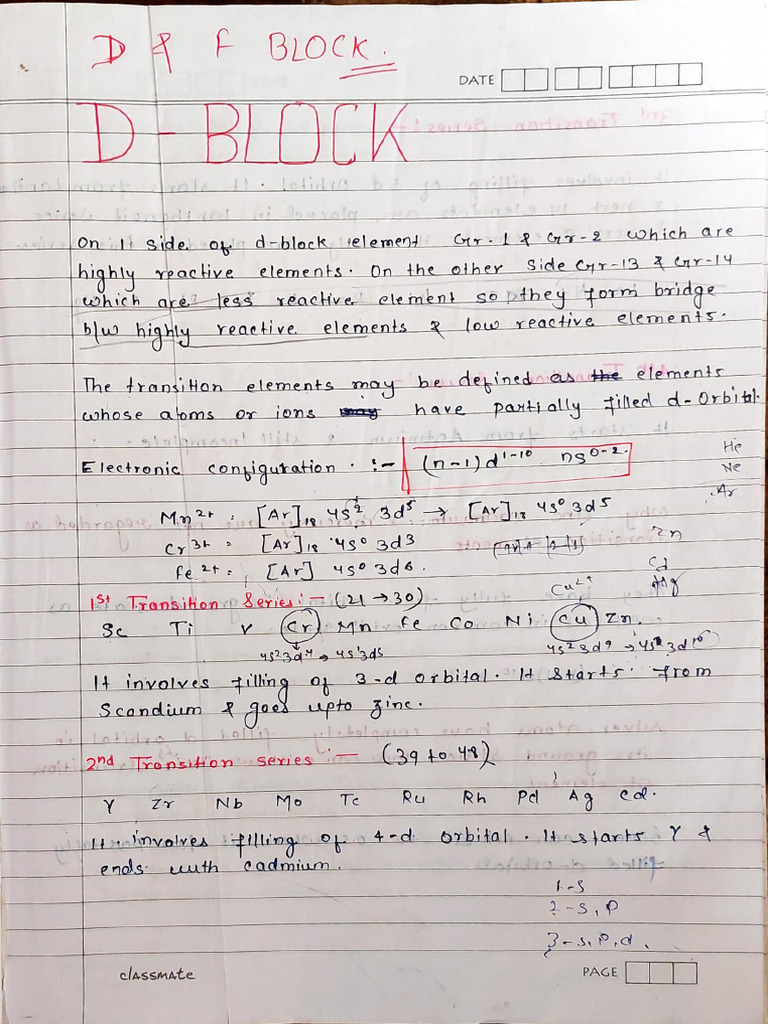 D & F BLOCK.
DATE
D-BLOCK
On 1t side of d-block element Gr. 1 & Gr-2 which are
highly reactive elements. On the other side Gr-13 & Gr-14
which are less reactive element so they form bridge
b/w highly reactive elements & low reactive elements.
The transition elements may be defined as the elements
whose atoms or ions may have partially filled d-Orbital.
Electronic configuration. :- (n-1)d¹⁻¹⁰ ns⁰⁻².
He
Ne
Ar
Mn²⁺ = [Ar]₁₈ 4s² 3d⁵ → [Ar]₁₈ 4s⁰ 3d⁵
Cr³⁺ = [Ar]₁₈ 4s⁰ 3d³
Zn
Fe²⁺ = [Ar] 4s⁰ 3d⁶.
Cd
Hg
Cu²⁺
1st Transition Series:- (21 → 30)
Sc Ti V Cr Mn Fe Co Ni Cu Zn.
4s²3d⁴ → 4s¹3d⁵ 4s²3d⁹ → 4s¹3d¹⁰
It involves filling of 3-d orbital. It starts from
Scandium & goes upto zinc.
2nd Transition series:- (39 to 48)
Y Zr Nb Mo Tc Ru Rh Pd Ag Cd.
It involves filling of 4-d orbital. It starts Y &
ends with cadmium.
1-s
2-s, p
3-s, p, d.
classmate
PAGE